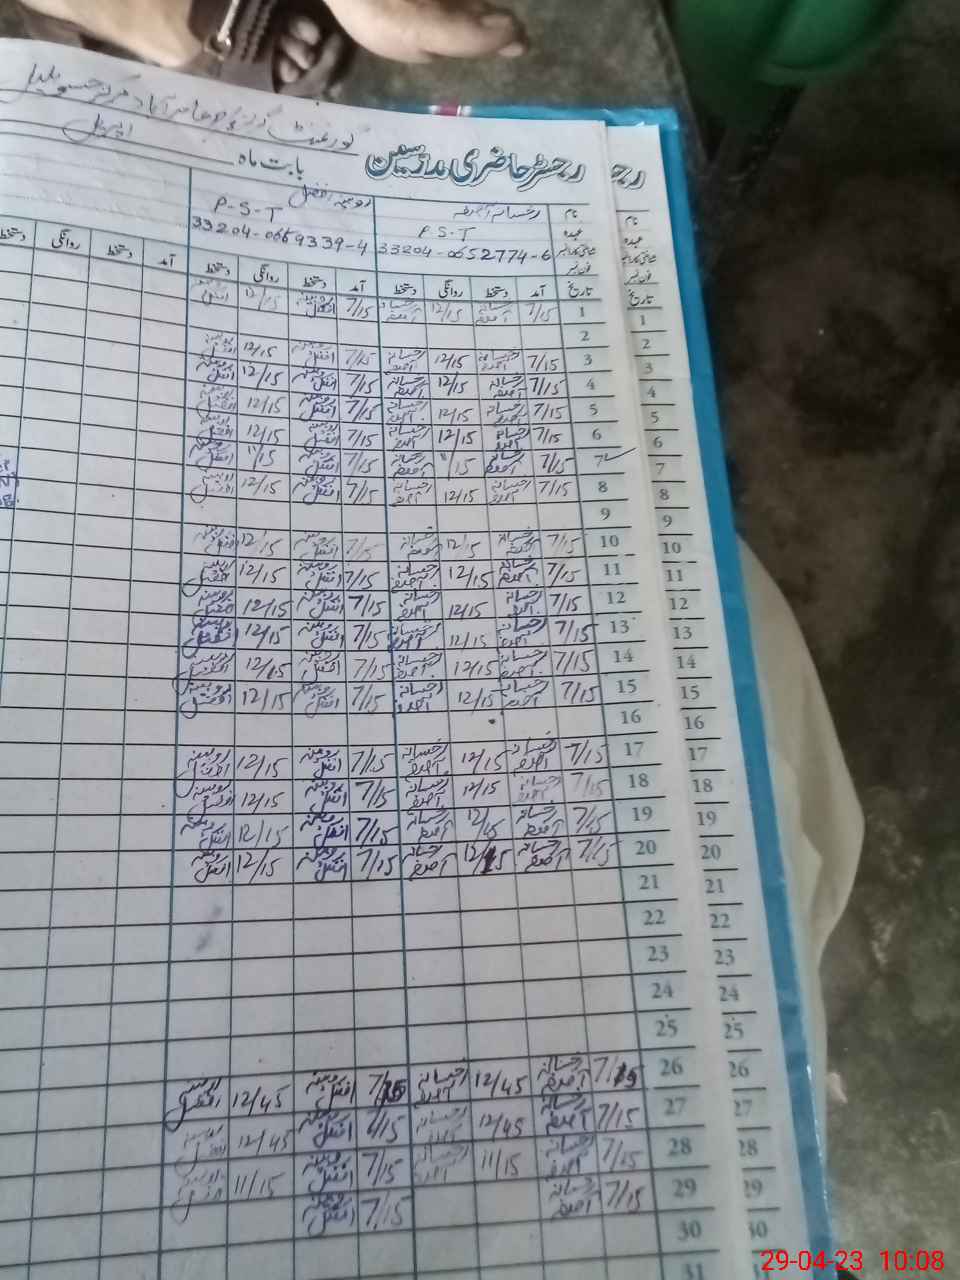 گورنمنٹ گرلز
رجسٹر حاضری مدرسین بابت ماہ اپریل
نام رخسانہ آصف روبینہ افضل
عہدہ P.S.T P-S-T
33204-0652774-6 33204-0669339-4
تاریخ آمد دستخط روانگی دستخط آمد دستخط روانگی دستخط آمد دستخط روانگی دستخط
1 7/15 رخسانہ آصف 12/15 رخسانہ آصف 7/15 روبینہ افضل 12/15 روبینہ افضل
2
3 7/15 رخسانہ آصف 12/15 رخسانہ آصف 7/15 روبینہ افضل 12/15 روبینہ افضل
4 7/15 رخسانہ آصف 12/15 رخسانہ آصف 7/15 روبینہ افضل 12/15 روبینہ افضل
5 7/15 رخسانہ آصف 12/15 رخسانہ آصف 7/15 روبینہ افضل 12/15 روبینہ افضل
6 7/15 رخسانہ آصف 12/15 رخسانہ آصف 7/15 روبینہ افضل 12/15 روبینہ افضل
7 7/15 رخسانہ آصف 11/15 رخسانہ آصف 7/15 روبینہ افضل 11/15 روبینہ افضل
8 7/15 رخسانہ آصف 12/15 رخسانہ آصف 7/15 روبینہ افضل 12/15 روبینہ افضل
9
10 7/15 رخسانہ آصف 12/15 رخسانہ آصف 7/15 روبینہ افضل 12/15 روبینہ افضل
11 7/15 رخسانہ آصف 12/15 رخسانہ آصف 7/15 روبینہ افضل 12/15 روبینہ افضل
12 7/15 رخسانہ آصف 12/15 رخسانہ آصف 7/15 روبینہ افضل 12/15 روبینہ افضل
13 7/15 رخسانہ آصف 12/15 رخسانہ آصف 7/15 روبینہ افضل 12/15 روبینہ افضل
14 7/15 رخسانہ آصف 12/15 رخسانہ آصف 7/15 روبینہ افضل 12/15 روبینہ افضل
15 7/15 رخسانہ آصف 12/15 رخسانہ آصف 7/15 روبینہ افضل 12/15 روبینہ افضل
16
17 7/15 رخسانہ آصف 12/15 رخسانہ آصف 7/15 روبینہ افضل 12/15 روبینہ افضل
18 7/15 رخسانہ آصف 12/15 رخسانہ آصف 7/15 روبینہ افضل 12/15 روبینہ افضل
19 7/15 رخسانہ آصف 12/15 رخسانہ آصف 7/15 روبینہ افضل 12/15 روبینہ افضل
20 7/15 رخسانہ آصف 12/15 رخسانہ آصف 7/15 روبینہ افضل 12/15 روبینہ افضل
21
22
23
24
25
26 7/15 رخسانہ آصف 12/45 رخسانہ آصف 7/15 روبینہ افضل 12/45 روبینہ افضل
27 7/15 رخسانہ آصف 12/45 رخسانہ آصف 7/15 روبینہ افضل 12/45 روبینہ افضل
28 7/15 رخسانہ آصف 11/15 رخسانہ آصف 7/15 روبینہ افضل 11/15 روبینہ افضل
29 7/15 رخسانہ آصف 7/15 روبینہ افضل
30
31
رج
نام
عہدہ
تاریخ
1
2
3
4
5
6
7
8
9
10
11
12
13
14
15
16
17
18
19
20
21
22
23
24
25
26
27
28
29
30
29-04-23 10:08